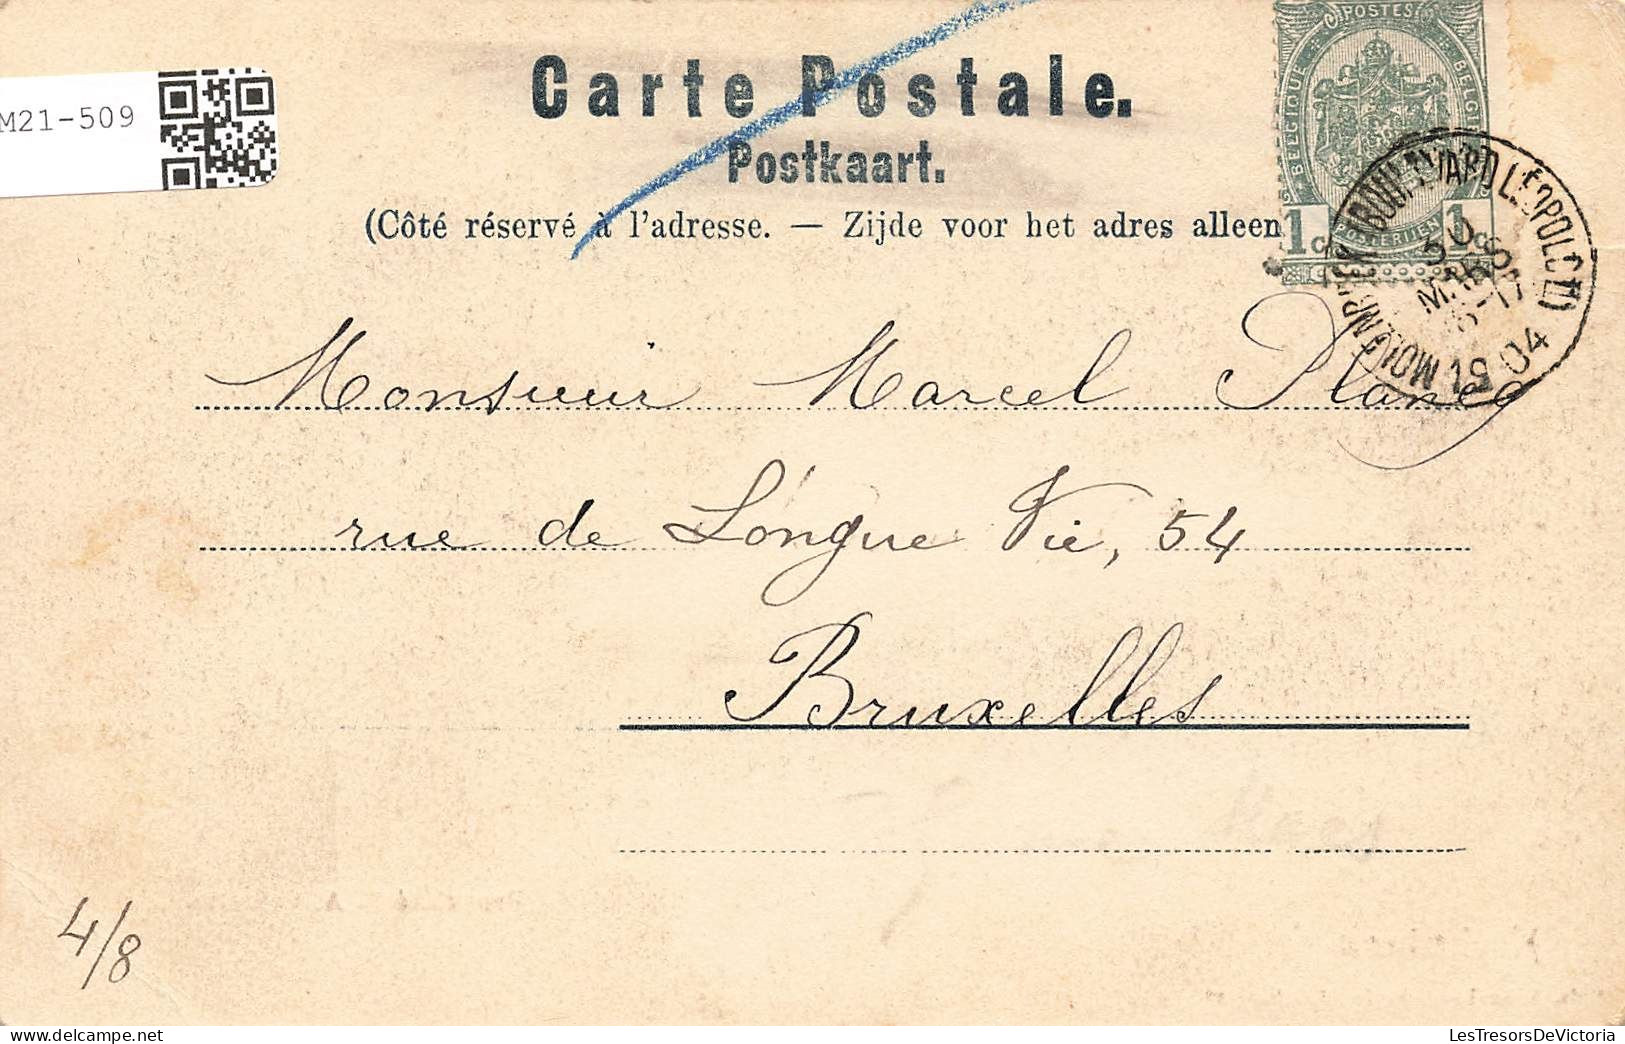 M21-509
Carte Postale.
Postkaart.
(Côté réservé à l'adresse. — Zijde voor het adres alleen
POSTES
BELGIQUE
BELGIË
POSTERIJEN
1c 1c
(BOULEVARD LÉOPOLD II)
1904
Monsieur Marcel
rue de Longue Vie, 54
Bruxelles
4/8
LesTresorsDeVictoria